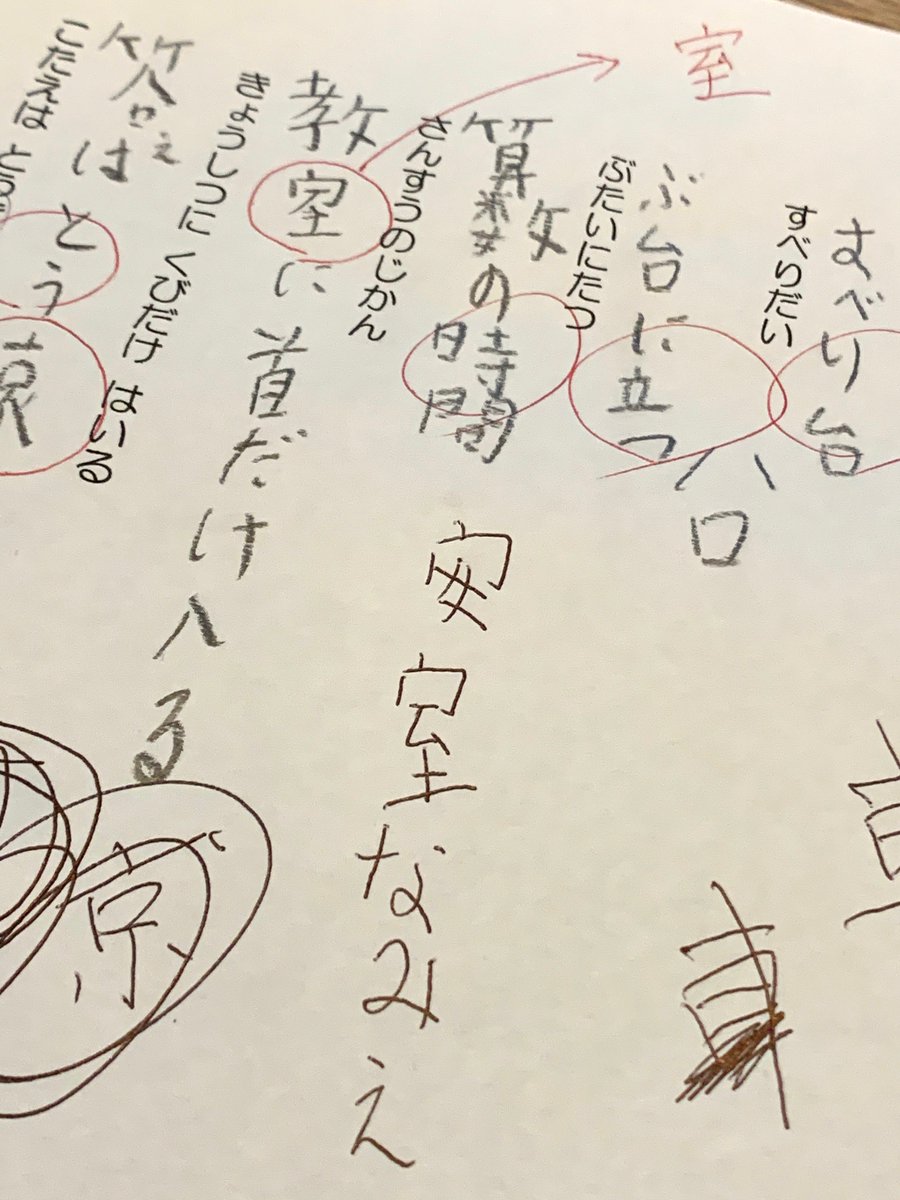 室
すべり台
すべりだい
ぶ台に立つ
ぶたいにたつ
ハロ
算数の時間
さんすうのじかん
教室に首だけ入る
きょうしつに くびだけ はいる
答えは とう
こたえは とう
安室なみえ
京